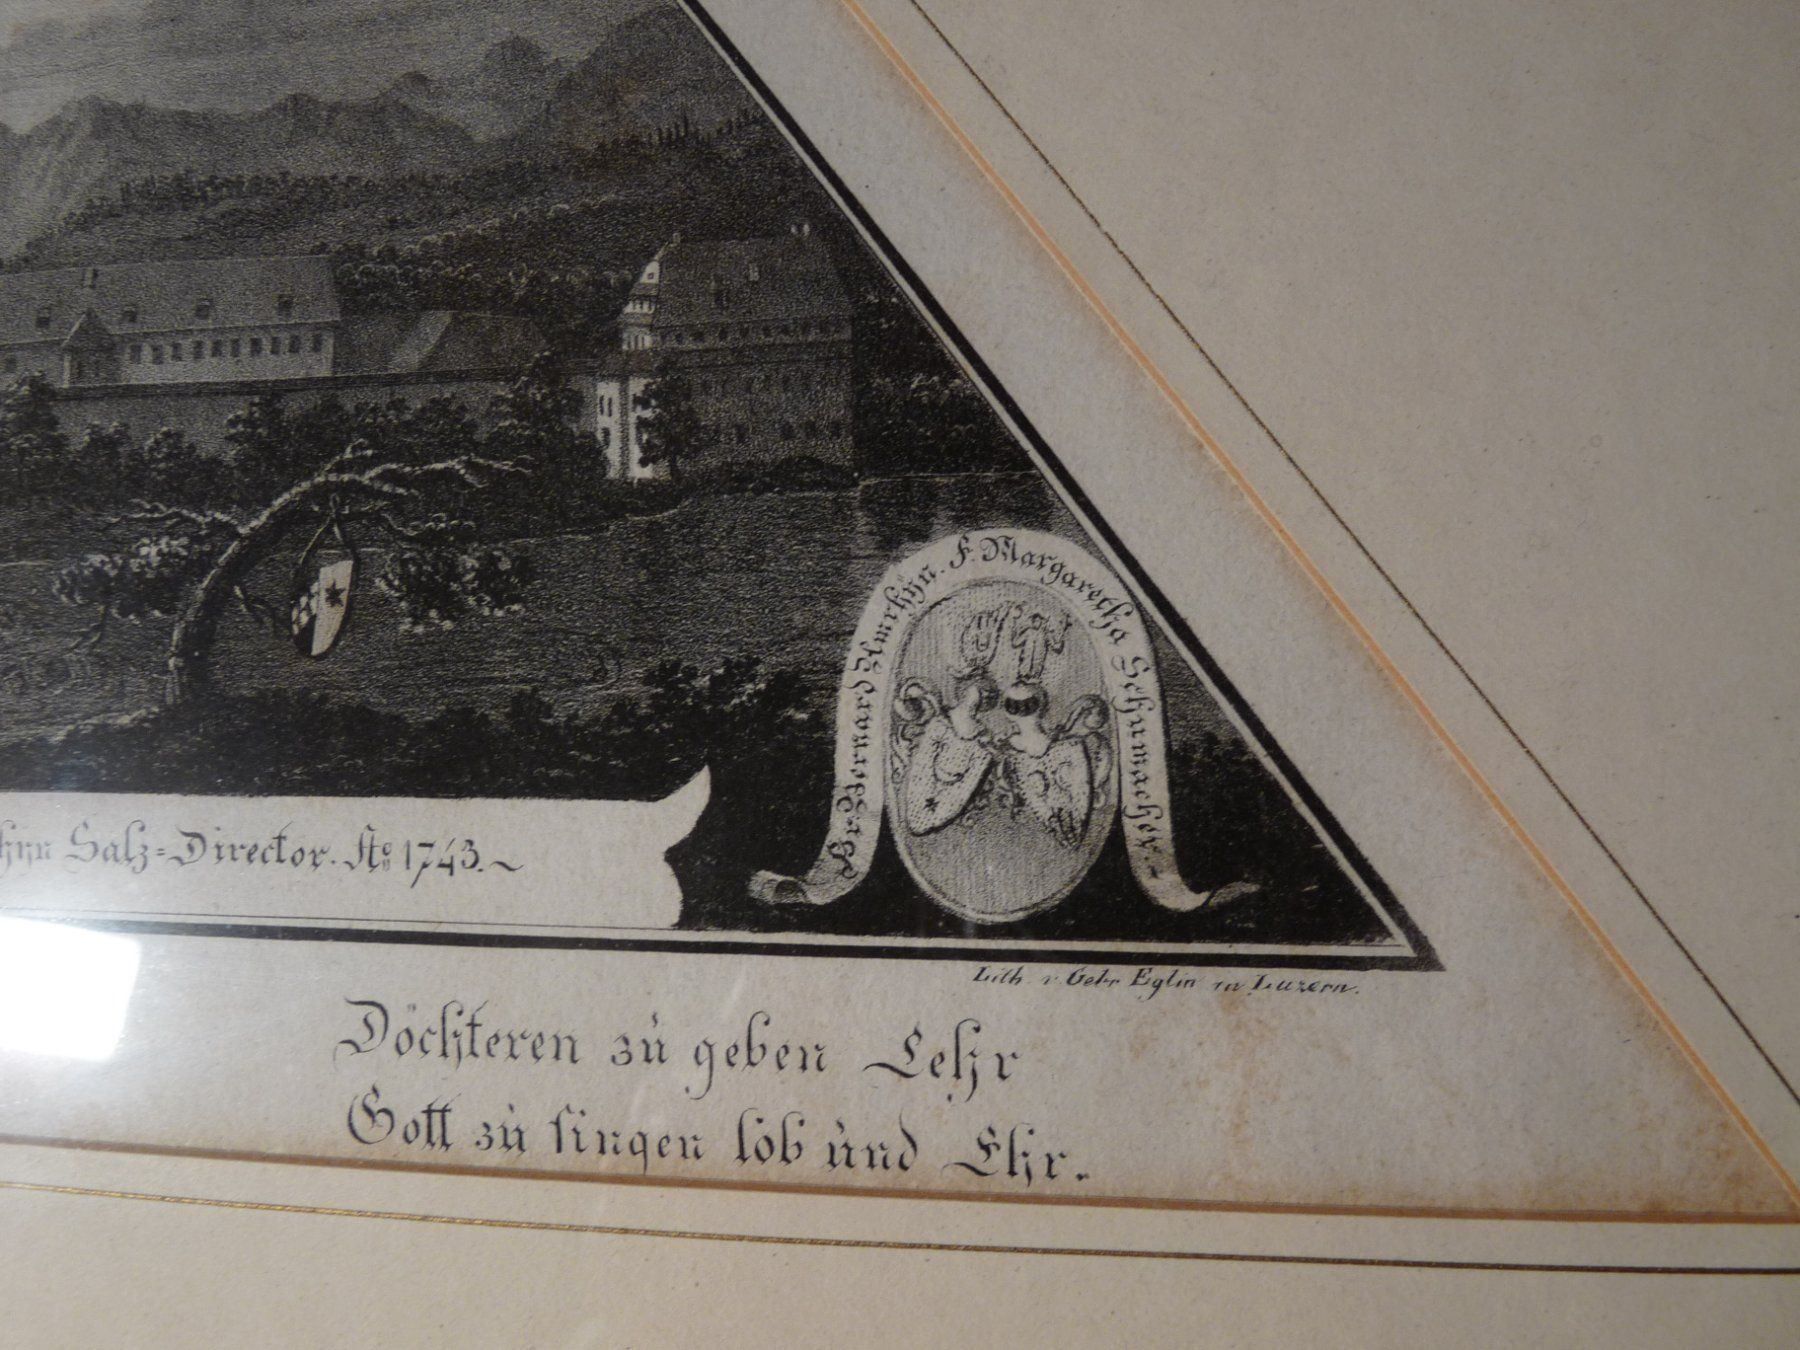 Hr. Bernard Amrhÿn. F. Margaretha Schumacher.
hÿn Salz=Director. Ao 1743.~
Lith. v. Gebr Eglin in Luzern.
Döchteren zù geben Lehr
Gott zù singen lob ùnd Ehr.